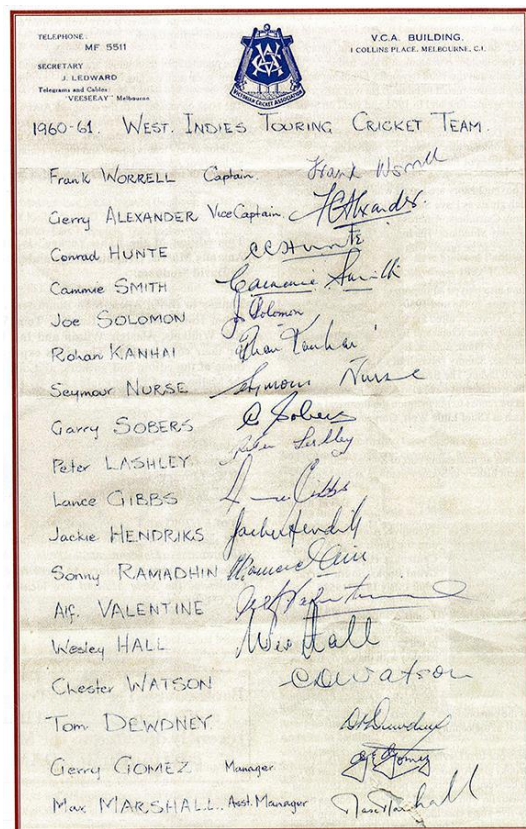 TELEPHONE:
MF 5511
SECRETARY
J. LEDWARD
Telegrams and Cables:
"VEESEEAY" Melbourne
VICTORIAN CRICKET ASSOCIATION
V.C.A. BUILDING,
1 COLLINS PLACE, MELBOURNE, C.1.
1960-61. WEST. INDIES TOURING CRICKET TEAM.
Frank WORRELL Captain. Frank Worrell
Gerry ALEXANDER Vice Captain. FCAlexander.
Conrad HUNTE CCHunte
Cammie SMITH Cammie Smith
Joe SOLOMON J Solomon
Rohan KANHAI Rohan Kanhai
Seymour NURSE Seymour Nurse
Garry SOBERS G Sobers
Peter LASHLEY Peter Lashley
Lance GIBBS Lance Gibbs
Jackie HENDRIKS Jackie Hendriks
Sonny RAMADHIN
Alf. VALENTINE Alf Valentine
Wesley HALL Wes Hall
Chester WATSON CDWatson
Tom DEWDNEY DTDewdney
Gerry GOMEZ Manager GEGomez
Max MARSHALL. Asst. Manager Max Marshall